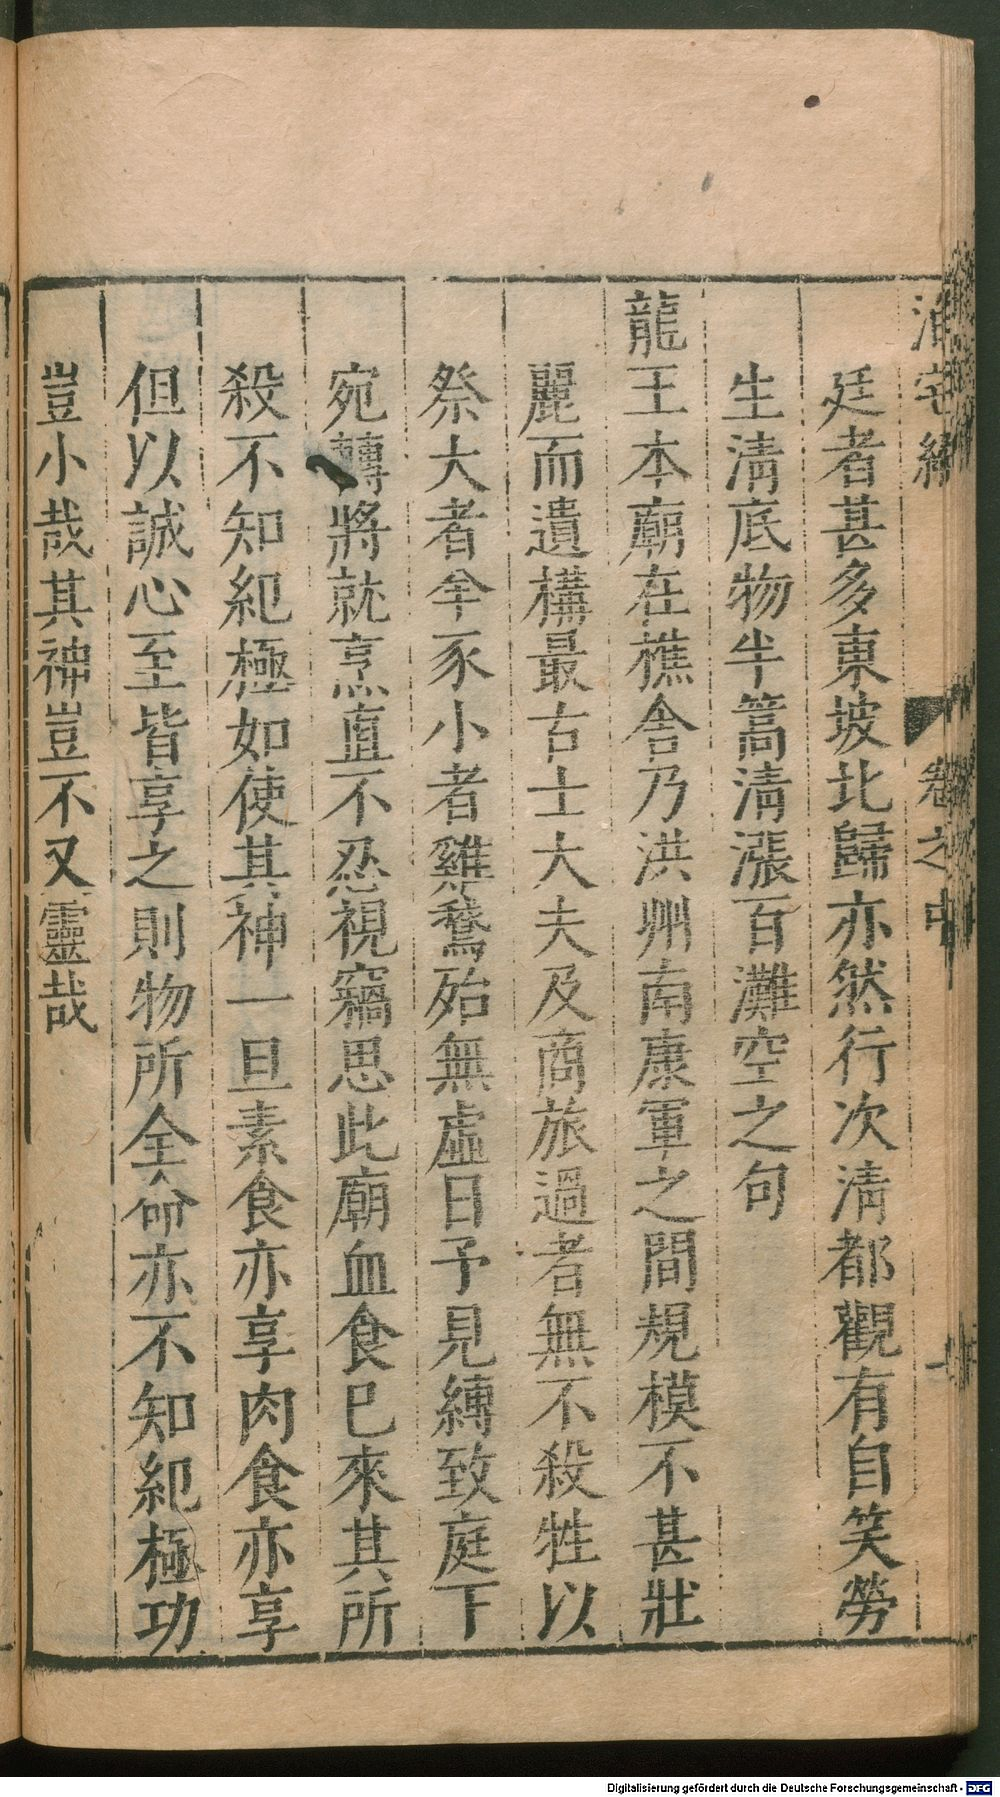 泊宅編 卷之中
廷者甚多東坡北歸亦然行次清都觀有自笑勞
生清底物半篙清漲百灘空之句
龍王本廟在樵舍乃洪州南康軍之間規模不甚壯
麗而遺構最古士大夫及商旅過者無不殺牲以
祭大者羊豕小者雞鶩殆無虛日予見縛致庭下
宛轉將就烹直不忍視竊思此廟血食已來其所
殺不知紀極如使其神一旦素食亦享肉食亦享
但以誠心至皆享之則物所全命亦不知紀極功
豈小哉其神豈不又靈哉
Digitalisierung gefördert durch die Deutsche Forschungsgemeinschaft - DFG